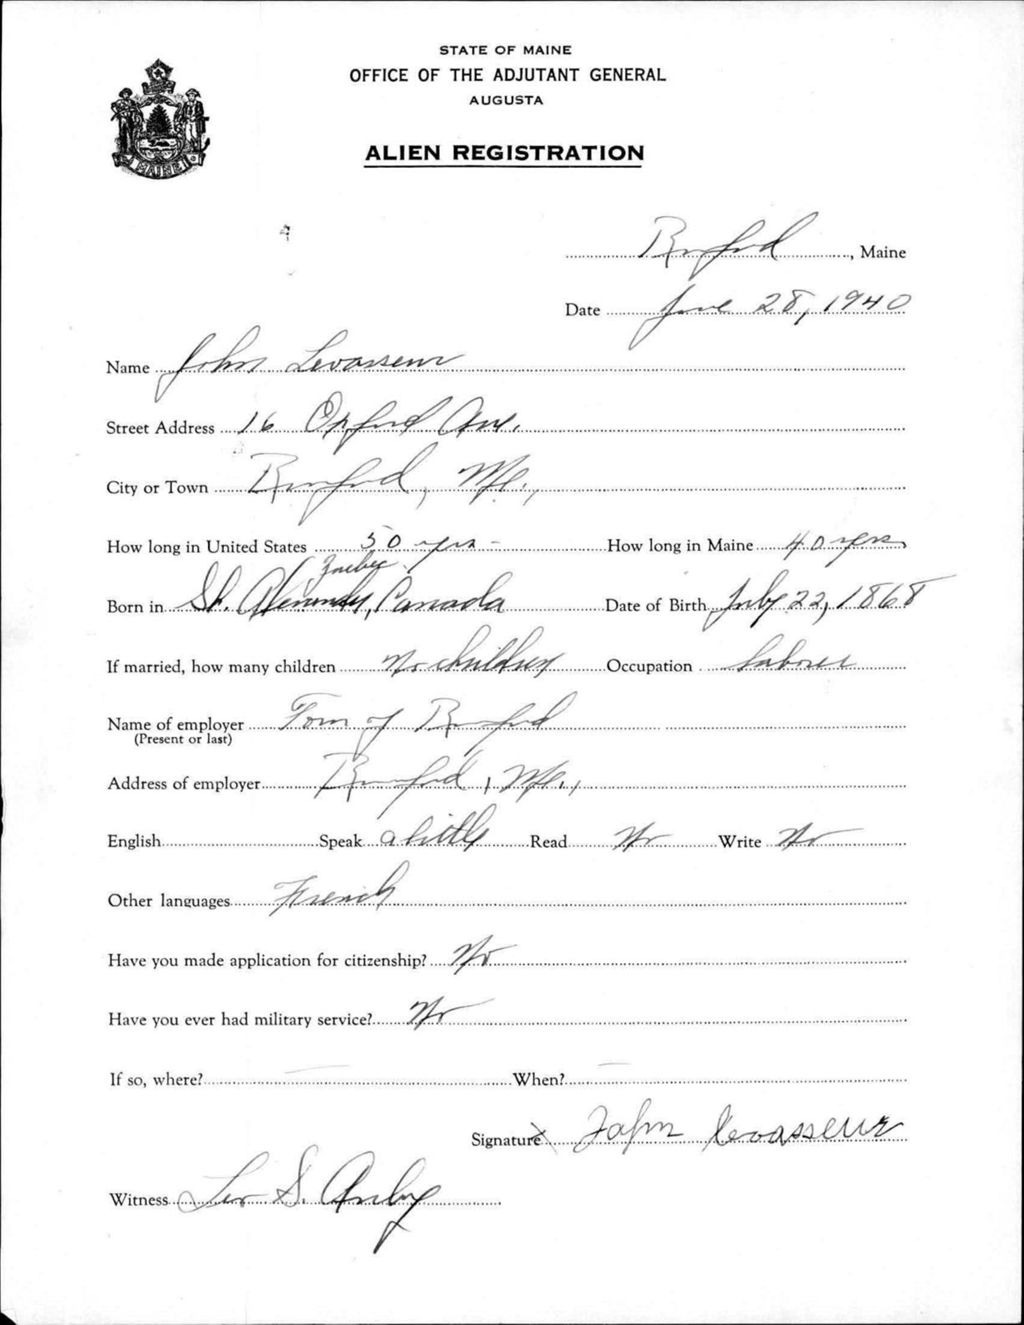 STATE OF MAINE
OFFICE OF THE ADJUTANT GENERAL
AUGUSTA
ALIEN REGISTRATION
MAINE
Rumford, Maine
Date June 28, 1940
Name John Levasseur
Street Address 16 Oxford Ave.
City or Town Rumford, Me.,
How long in United States 50 yrs - How long in Maine 40 yrs
Quebec
Born in St. Canada Date of Birth July 22, 1868
If married, how many children No children Occupation Laborer
Name of employer Town of Rumford
(Present or last)
Address of employer Rumford, Me.,
English Speak a little Read No Write No
Other languages French
Have you made application for citizenship? No
Have you ever had military service? No
If so, where? When?
Signature X John Levasseur
Witness S.